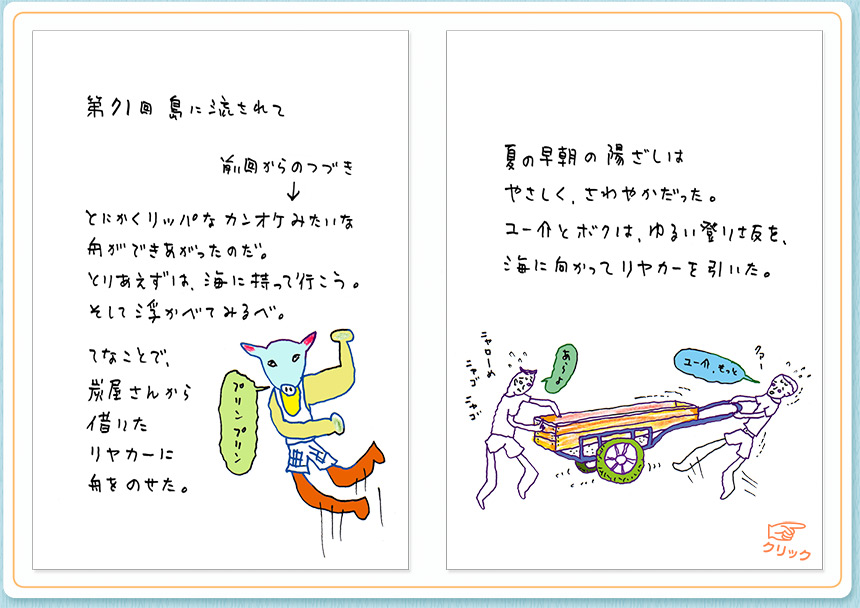 第71回 島に流されて
前回からのつづき
↓
とにかくリッパなカンオケみたいな
舟ができあがったのだ。
とりあえずは、海に持って行こう。
そして浮かべてみるべ。
てなことで、
炭屋さんから
借りた
リヤカーに
舟をのせた。
プリンプリン
夏の早朝の陽ざしは
やさしく、さわやかだった。
ユー介とボクは、ゆるい登り坂を、
海に向かってリヤカーを引いた。
ニャローめ
ニャゴ ニャゴ
あらよ
ユー介、もっと
クァー
クリック